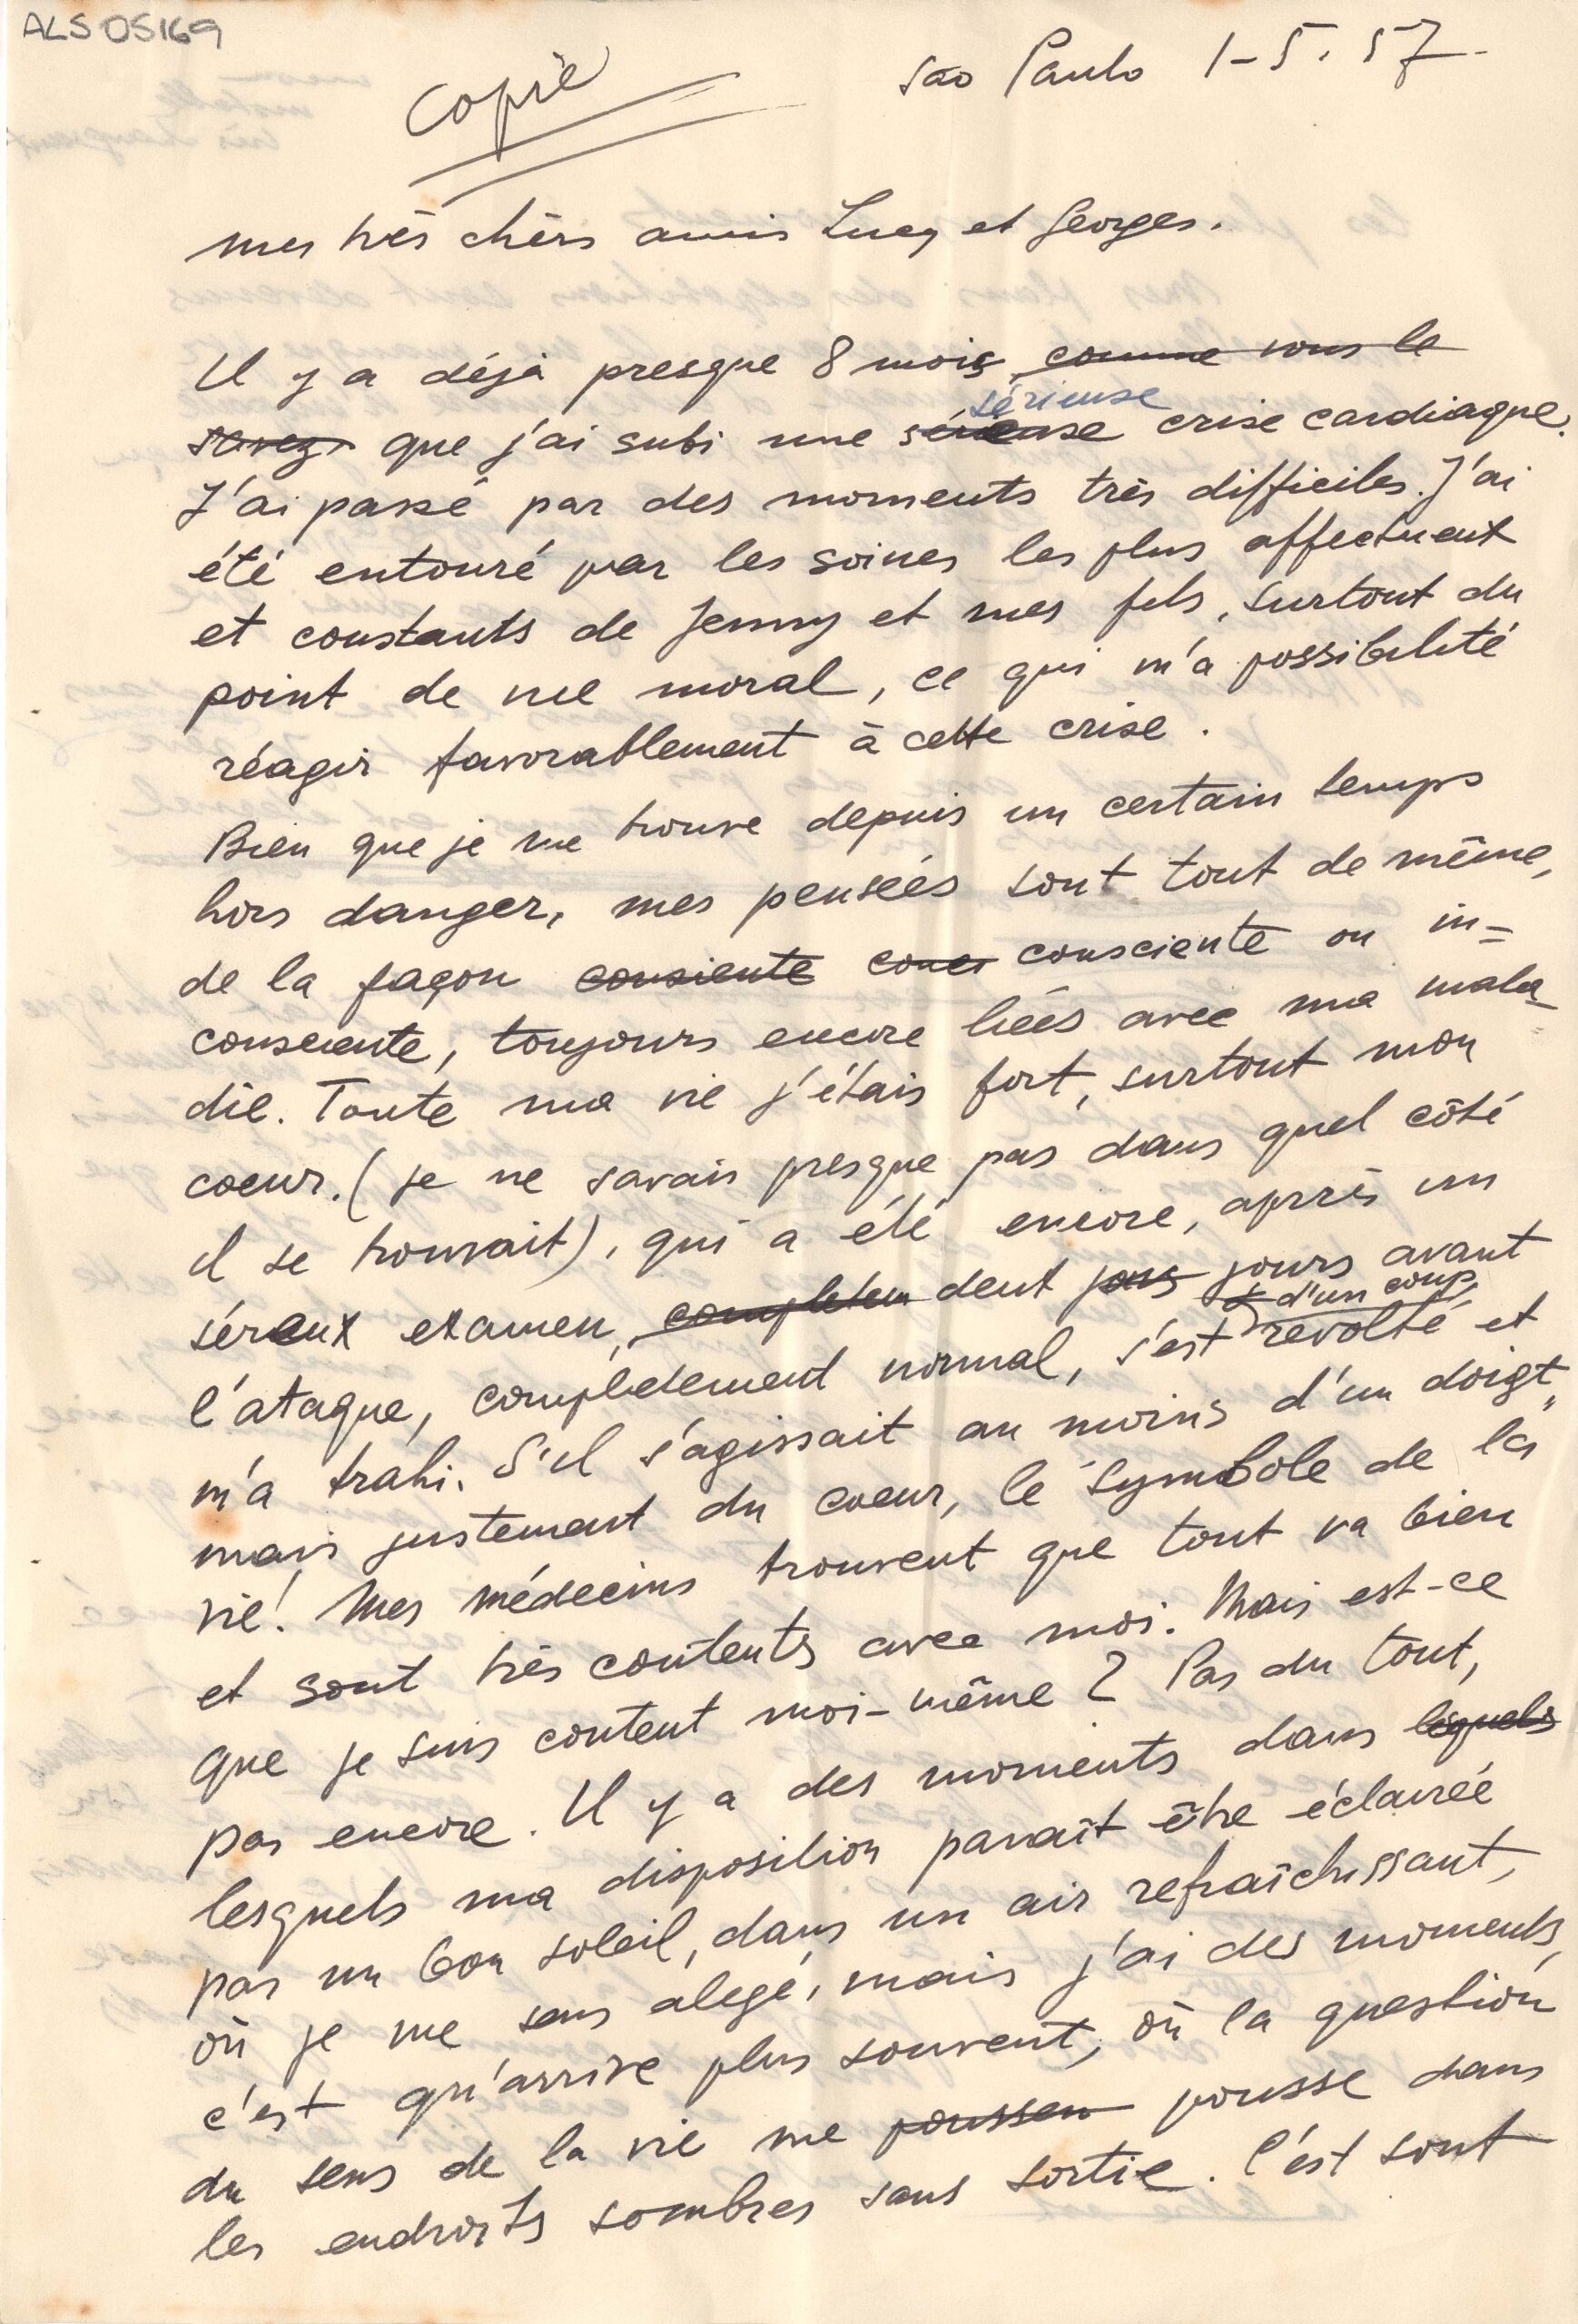 ALS 05169
Copie
São Paulo 1-5.57-
mes très chèrs amis Lucy et Georges.
Il y a déjà presque 8 mois, comme vous le
sérieuse
savez que j'ai subi une sérieuse crise cardiaque.
J'ai passé par des moments très difficiles. J'ai
été entouré par les soines les plus affectueux
et constants de Jenny et mes fils, surtout du
point de vue moral, ce qui m'a possibilité
réagir favorablement à cette crise.
Bien que je me trouve depuis un certain temps
hors danger, mes pensées sont tout de même,
de la façon consiente consciente ou in=
consciente, toujours encore liées avec ma mala-
die. Toute ma vie j'étais fort, surtout mon
coeur. (je ne savais presque pas dans quel côté
il se trouvait), qui a été encore, après un
séreux examen, completem deut jours avant
d'un coup
l'ataque, complètement normal, s'est revolté et
m'a trahi. S'il s'agissait au moins d'un doigt,
mais justement du coeur, le symbole de la
vie! Mes médecins trouvent que tout va bien
et sont très contents avec moi. Mais est-ce
que je suis content moi-même? Pas du tout,
pas encore. Il y a des moments dans lesquels
lesquels ma disposition paraît être éclairée
par un bon soleil, dans un air refraîchissant,
où je me sens alegé, mais j'ai des moments,
c'est qu'arrive plus souvent, où la question
du sens de la vie me poussen pousse dans
les endroits sombres sans sortie. C'est sont